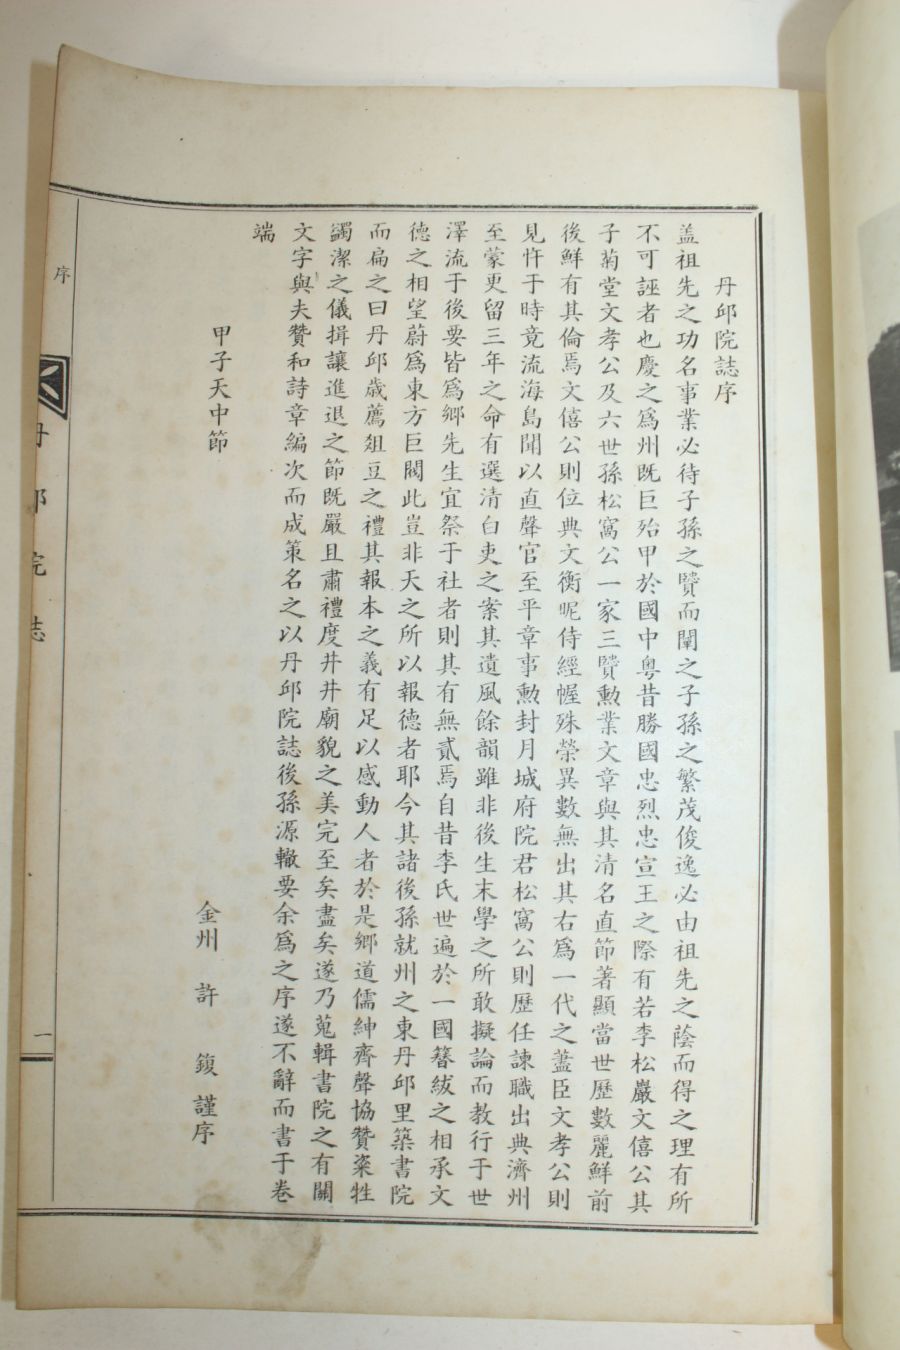 丹邱院誌序
盖祖先之功名事業必待子孫之賢而闡之子孫之繁茂俊逸必由祖先之蔭而得之理有所
不可誣者也慶之爲州既巨殆甲於國中粤昔勝國忠烈忠宣王之際有若李松巖文僖公其
子菊堂文孝公及六世孫松窩公一家三賢勲業文章與其清名直節著顯當世歷數麗鮮前
後鮮有其倫焉文僖公則位典文衡昵侍經幄殊榮異數無出其右爲一代之藎臣文孝公則
見忤于時竟流海島聞以直聲官至平章事勲封月城府院君松窩公則歷任諫職出典濟州
至蒙更留三年之命有選清白吏之案其遺風餘韻雖非後生末學之所敢擬論而教行于世
澤流于後要皆爲鄉先生宜祭于社者則其有無貳焉自昔李氏世遍於一國簪紱之相承文
德之相望蔚爲東方巨閥此豈非天之所以報德者耶今其諸後孫就州之東丹邱里築書院
而扁之曰丹邱歲薦俎豆之禮其報本之義有足以感動人者於是鄉道儒紳齊聲協贊粢牲
蠲潔之儀揖讓進退之節既嚴且肅禮度井井廟貌之美完至矣盡矣遂乃蒐輯書院之有關
文字與夫贊和詩章編次而成策名之以丹邱院誌後孫源轍要余爲之序遂不辭而書于卷
端
甲子天中節
金州 許 鍑 謹序
序
丹邱院誌
一